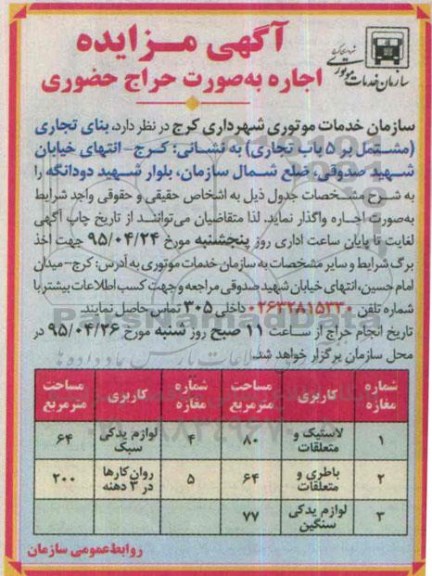 آگهی مزایده
اجاره به‌صورت حراج حضوری
سازمان خدمات موتوری
سازمان خدمات موتوری شهرداری کرج در نظر دارد، بنای تجاری
(مشتمل بر ۵ باب تجاری) به نشانی: کرج- انتهای خیابان
شهید صدوقی، ضلع شمال سازمان، بلوار شهید دودانگه را
به شرح مشخصات جدول ذیل به اشخاص حقیقی و حقوقی واجد شرایط
به‌صورت اجاره واگذار نماید. لذا متقاضیان می‌توانند از تاریخ چاپ آگهی
لغایت تا پایان ساعت اداری روز پنجشنبه مورخ ۹۵/۰۴/۲۴ جهت اخذ
برگ شرایط و سایر مشخصات به سازمان خدمات موتوری به آدرس: کرج- میدان
امام حسین، انتهای خیابان شهید صدوقی مراجعه و جهت کسب اطلاعات بیشتر با
شماره تلفن ۰۲۶۳۲۸۱۵۳۳۰ داخلی ۳۰۵ تماس حاصل نمایند.
تاریخ انجام حراج از ساعت ۱۱ صبح روز شنبه مورخ ۹۵/۰۴/۲۶ در
محل سازمان برگزار خواهد شد.
شماره مغازه کاربری مساحت مترمربع شماره مغازه کاربری مساحت مترمربع
۱ لاستیک و متعلقات ۸۰ ۴ لوازم یدکی سبک ۶۴
۲ باطری و متعلقات ۶۴ ۵ روان‌کارها در ۳ دهنه ۲۰۰
۳ لوازم یدکی سنگین ۷۷
روابط عمومی سازمان
ParsNamadData